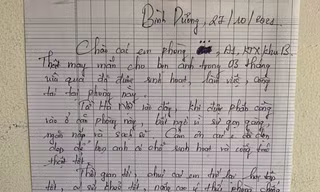 Bình Dương, 27/10/2021
Chào các em phòng A1, KTX khu B.
Thật may mắn cho bọn anh trong 03 tháng
vừa qua đã được sinh hoạt, làm việc, công
tác tại phòng này.
Từ Hà Nội vào đây, khi được phân công
vào ở căn phòng này, bất ngờ vì sự gọn gàng,
ngăn nắp và sạch sẽ. Cảm ơn các em đã dọn
dẹp để bọn anh có chỗ sinh hoạt và công tác
thật tốt.
Thời gian tới, chúc các em trở lại học tập
tốt, có sức khoẻ tốt,